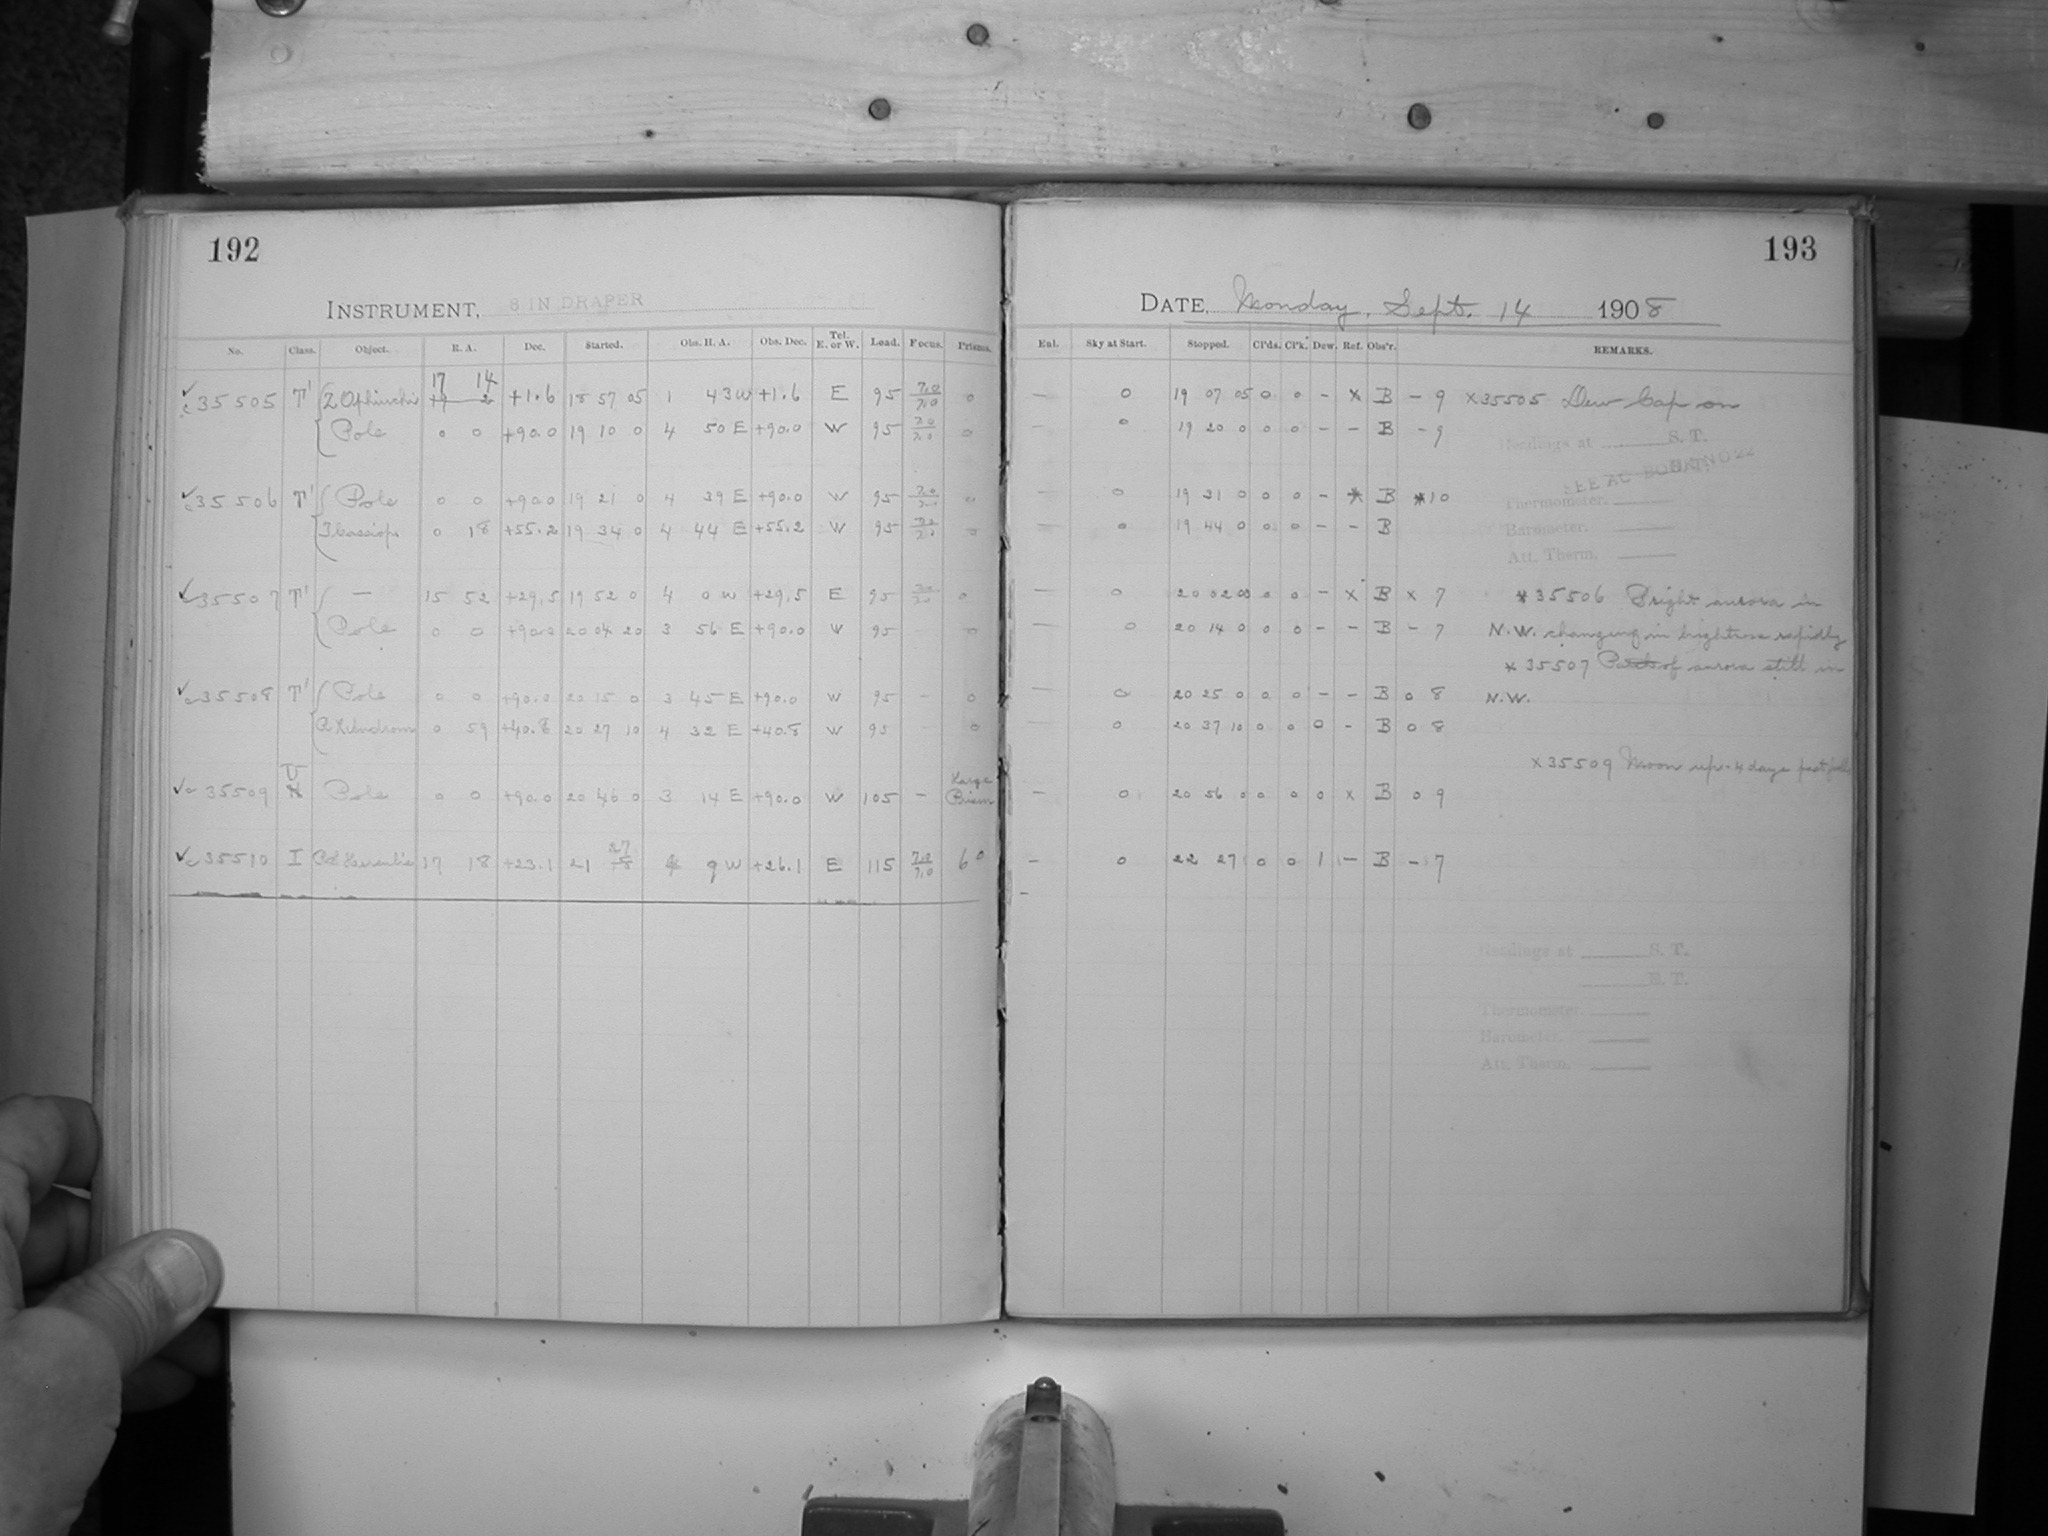 192
INSTRUMENT, 8 IN DRAPER
No. Class. Object. R. A. Dec. Started. Obs. H. A. Obs. Dec. Tel. E. or W. Load. Focus. Prisms.
17 14
35505 T' Z Ophiuchi +1.6 18 57 05 1 43 W +1.6 E 95 7.0 7.0 0
Pole 0 0 +90.0 19 10 0 4 50 E +90.0 W 95 7.0 7.0 0
35506 T' Pole 0 0 +90.0 19 21 0 4 39 E +90.0 W 95 7.0 7.0 0
T Cassiop. 0 18 +55.2 19 34 0 4 44 E +55.2 W 95 7.0 7.0 0
35507 T' — 15 52 +29.5 19 52 0 4 0 W +29.5 E 95 7.0 7.0 0
Pole 0 0 +90.0 20 04 20 3 56 E +90.0 W 95 0
35508 T' Pole 0 0 +90.0 20 15 0 3 45 E +90.0 W 95 - 0
0 59 +40.8 20 27 10 4 32 E +40.8 W 95 - 0
U Large
35509 Pole 0 0 +90.0 20 46 0 3 14 E +90.0 W 105 - Prism
27
35510 I 17 18 +23.1 21 4 9 W +26.1 E 115 7.0 7.0 6°
193
DATE, Monday, Sept. 14 1908
Enl. Sky at Start. Stopped. Cl'ds. Cl'k. Dew. Ref. Obs'r. REMARKS.
— 0 19 07 05 0 0 - x B - 9 x35505 Dew Cap on
- 0 19 20 0 0 0 - - B - 9
Readings at S. T.
SEE AC BOOK NO 22
— 0 19 31 0 0 0 - * B *10
Thermometer.
— 0 19 44 0 0 0 - - B
Barometer.
Att. Therm.
— 0 20 02 03 0 0 - x B x 7 *35506 Bright aurora in
— 0 20 14 0 0 0 - - B - 7 N.W. changing in brightness rapidly
*35507 Patch of aurora still in
— 0 20 25 0 0 0 - - B 0 8 N.W.
— 0 20 37 10 0 0 0 - B 0 8
x35509 Moon up - 4 days past full
— 0 20 56 0 0 0 0 x B 0 9
- 0 22 27 0 0 1 - B - 7
-
Readings at S. T.
E. T.
Thermometer.
Barometer.
Att. Therm.